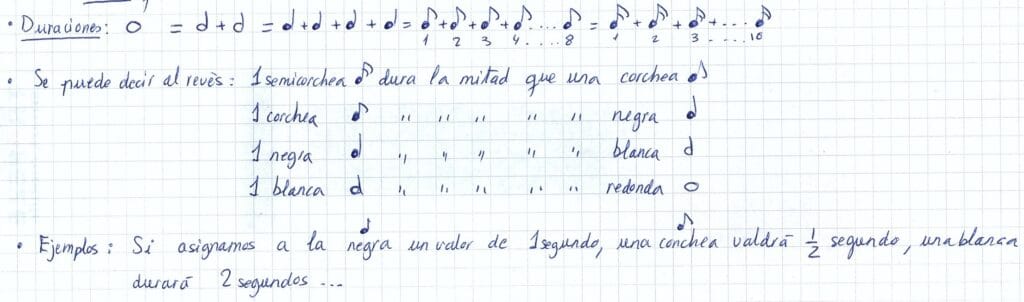 • Duraciones: 𝅝 = 𝅗𝅥 + 𝅗𝅥 = ♩ + ♩ + ♩ + ♩ = ♪ + ♪ + ♪ + ♪ ... ♪ = 𝅘𝅥𝅯 + 𝅘𝅥𝅯 + 𝅘𝅥𝅯 + ... 𝅘𝅥𝅯
1 2 3 4 .... 8 1 2 3 .... 16
• Se puede decir al revés: 1 semicorchea 𝅘𝅥𝅯 dura la mitad que una corchea ♪
1 corchea ♪ " " " " " negra ♩
1 negra ♩ " " " " " blanca 𝅗𝅥
1 blanca 𝅗𝅥 " " " " " redonda 𝅝
♩ ♪
• Ejemplos: Si asignamos a la negra un valor de 1 segundo, una corchea valdrá 1/2 segundo, una blanca
durará 2 segundos ...